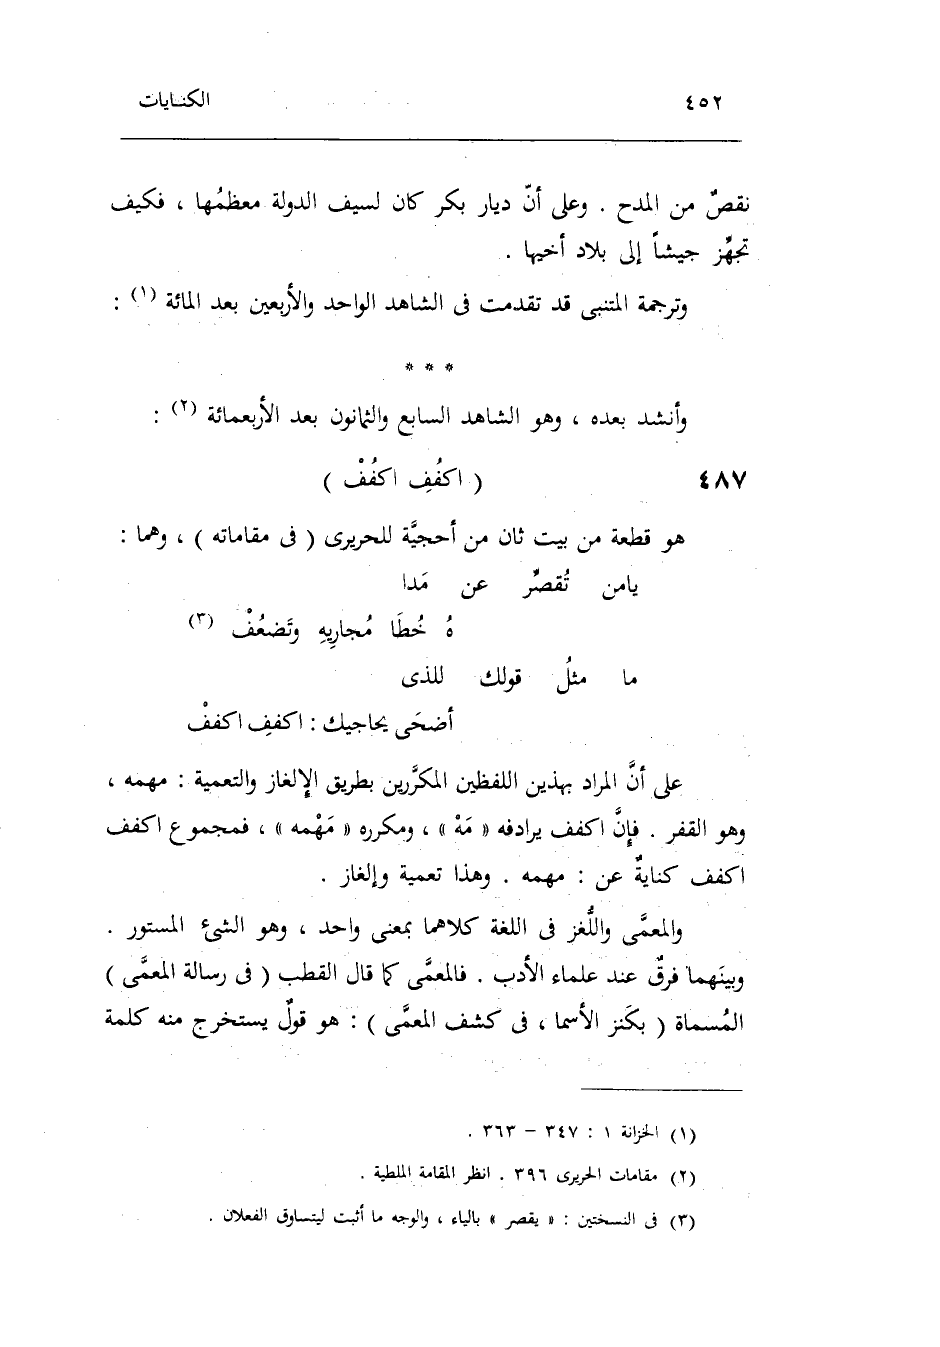 ٤٥٢ الكنايات
نقصٌ من المدح . وعلى أنّ ديار بكر كان لسيف الدولة معظمُها ، فكيف
تجهِّز جيشاً إلى بلاد أخيها .
وترجمة المتنبى قد تقدمت فى الشاهد الواحد والأربعين بعد المائة (١) :
* * *
وأنشد بعده ، وهو الشاهد السابع والثمانون بعد الأربعمائة (٢) :
٤٨٧ ( اكفُفِ اكفُفْ )
هو قطعة من بيت ثان من أحجيَّة للحريرى ( فى مقاماته ) ، وهما :
يامن تُقصِّر عن مَدا
هُ خُطَا مُجارِيهِ وتَضعُفْ (٣)
ما مثلُ قولك للذى
أضحَى يحاجيك : اكففِ اكففْ
على أنَّ المراد بهذين اللفظين المكرَّرين بطريق الإلغاز والتعمية : مهمه ،
وهو القفر . فإنَّ اكفف يرادفه « مَهْ » ، ومكرره « مَهْمه » ، فمجموع اكفف
اكفف كنايةٌ عن : مهمه . وهذا تعمية وإلغاز .
والمعمَّى واللُّغز فى اللغة كلاهما بمعنى واحد ، وهو الشىء المستور .
وبينَهما فرقٌ عند علماء الأدب . فالمعمَّى كما قال القطب ( فى رسالة المعمَّى )
المُسماة ( بكَنز الأسما ، فى كشف المعمَّى ) : هو قولٌ يستخرج منه كلمة
(١) الخزانة ١ : ٣٤٧ – ٣٦٣ .
(٢) مقامات الحريرى ٣٩٦ . انظر المقامة الملطية .
(٣) فى النسختين : « يقصر » بالياء ، والوجه ما أثبت ليتساوق الفعلان .